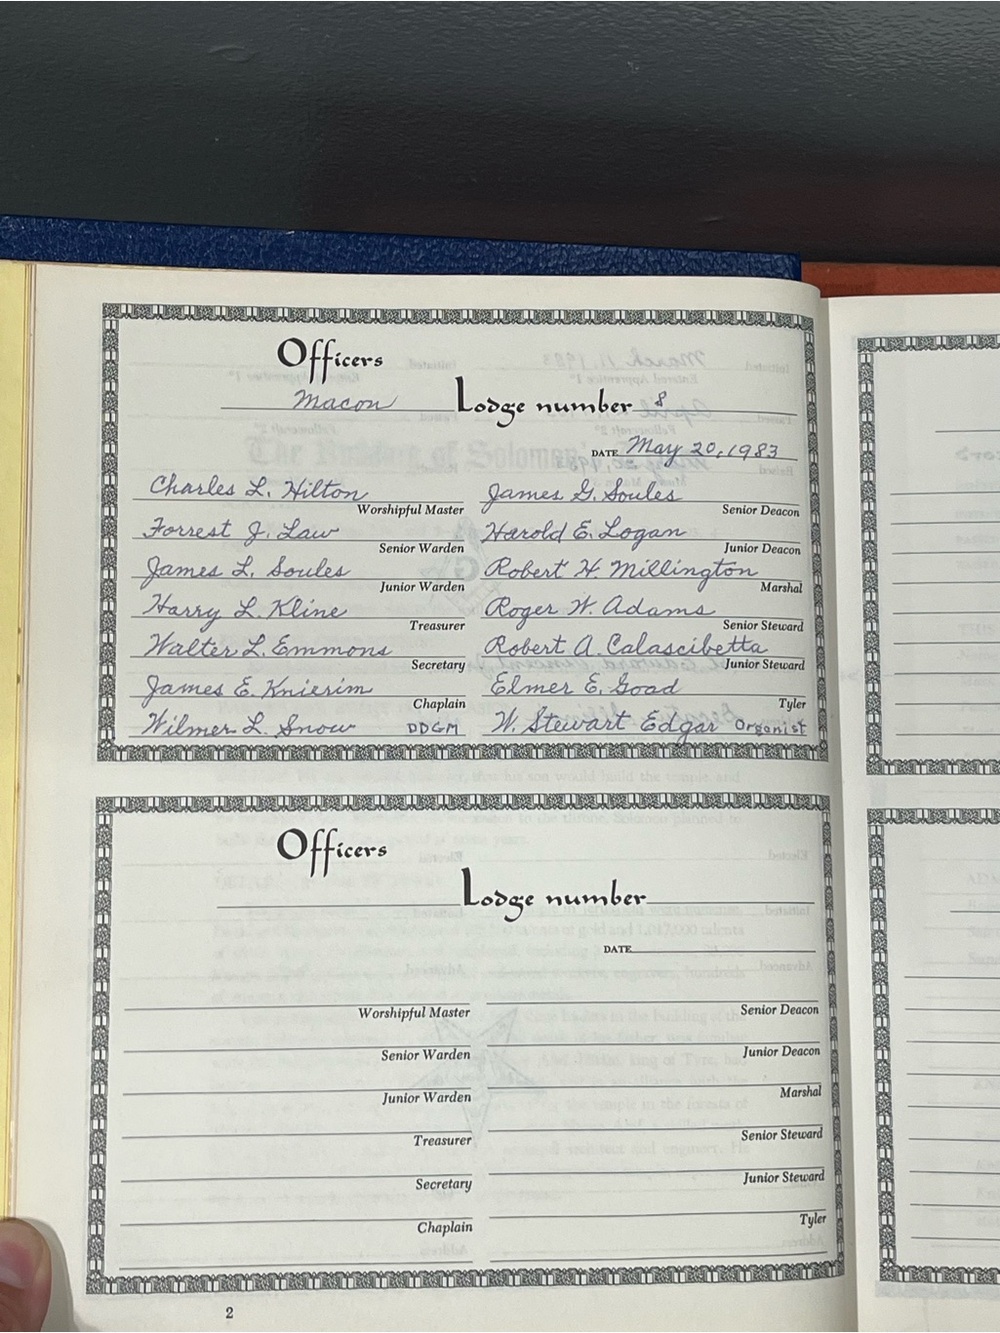 Officers
Macon Lodge number 8
DATE May 20, 1983
Charles L. Hilton
Worshipful Master
James G. Soules
Senior Deacon
Forrest J. Law
Senior Warden
Harold E. Logan
Junior Deacon
James L. Soules
Junior Warden
Robert H. Millington
Marshal
Harry L. Kline
Treasurer
Roger W. Adams
Senior Steward
Walter L. Emmons
Secretary
Robert A. Calascibetta
Junior Steward
James E. Knierim
Chaplain
Elmer E. Goad
Tyler
Wilmer L. Snow DDGM
W. Stewart Edgar Organist
Officers
Lodge number
DATE
Worshipful Master
Senior Deacon
Senior Warden
Junior Deacon
Junior Warden
Marshal
Treasurer
Senior Steward
Secretary
Junior Steward
Chaplain
Tyler
2